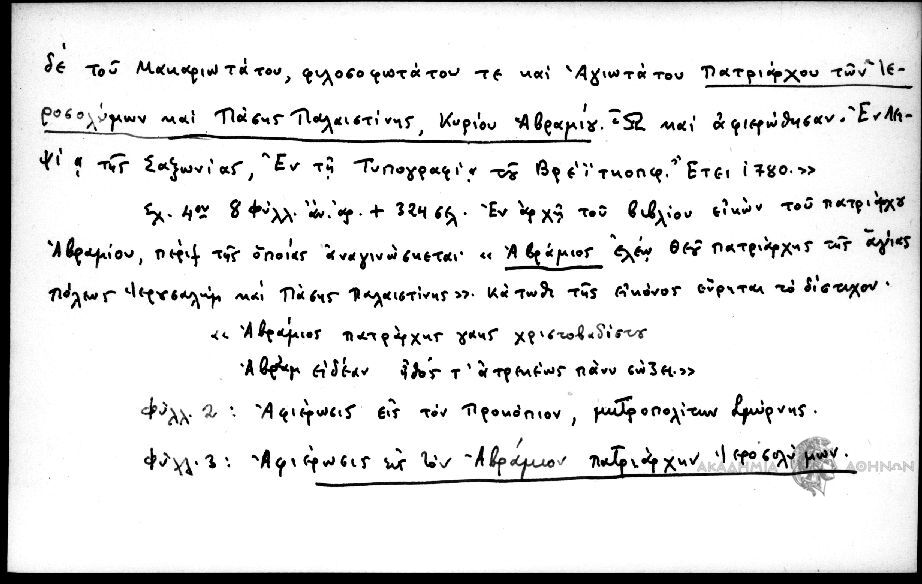 δέ τοῦ Μακαριωτάτου, φιλοσοφωτάτου τε καί Ἁγιωτάτου Πατριάρχου τῶν Ἱε-
ροσολύμων καί Πάσης Παλαιστίνης, Κυρίου Ἀβραμίου. Ὧ καί ἀφιερώθησαν. Ἐν Λει-
ψίᾳ τῆς Σαξωνίας, Ἐν τῇ Τυπογραφίᾳ τοῦ Βρέϊτκοπφ. Ἔτει 1780.»
Σχ. 4ον 8 φύλλ. ἀν. ἀρ. + 324 σελ. Ἐν ἀρχῇ τοῦ βιβλίου εἰκών τοῦ πατριάρχου
Ἀβραμίου, πέριξ τῆς ὁποίας ἀναγινώσκεται « Ἀβράμιος ἐλέῳ Θεοῦ πατριάρχης τῆς ἁγίας
πόλεως Ἱερουσαλήμ καί Πάσης Παλαιστίνης». Κάτωθι τῆς εἰκόνος εὕρηται τό δίστιχον.
« Ἀβράμιος πατράρχης γαης χριστοβαδίστου
Ἀβραμ εἰδέαν ἦθός τ' ἀτρεκέως πάνυ σώζει.»
Φύλλ. 2 : Ἀφιέρωσις εἰς τόν Προκόπιον, μητροπολίτην Σμύρνης.
Φύλλ. 3 : Ἀφιέρωσις εἰς τόν Ἀβράμιον πατριάρχην Ἱεροσολύμων.
ΑΚΑΔΗΜΙΑ ΑΘΗΝΩΝ